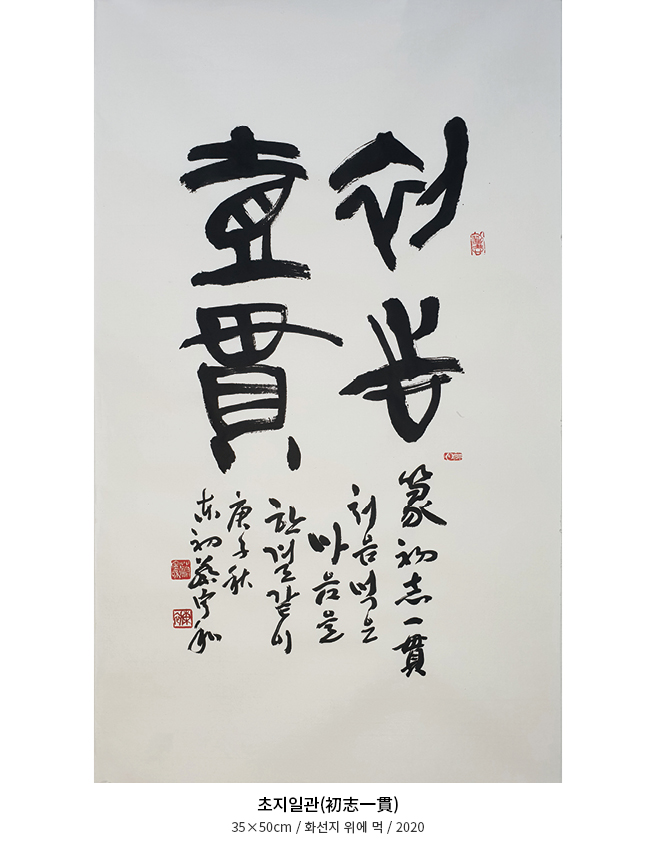 初志
壹貫
篆初志一貫
처음먹은
마음을
한결같이
庚子秋
东初蔡
초지일관(初志一貫)
35×50cm / 화선지 위에 먹 / 2020